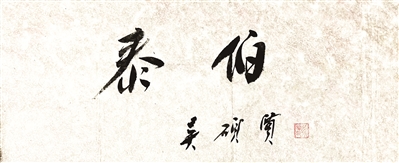 泰伯
吴硕贤